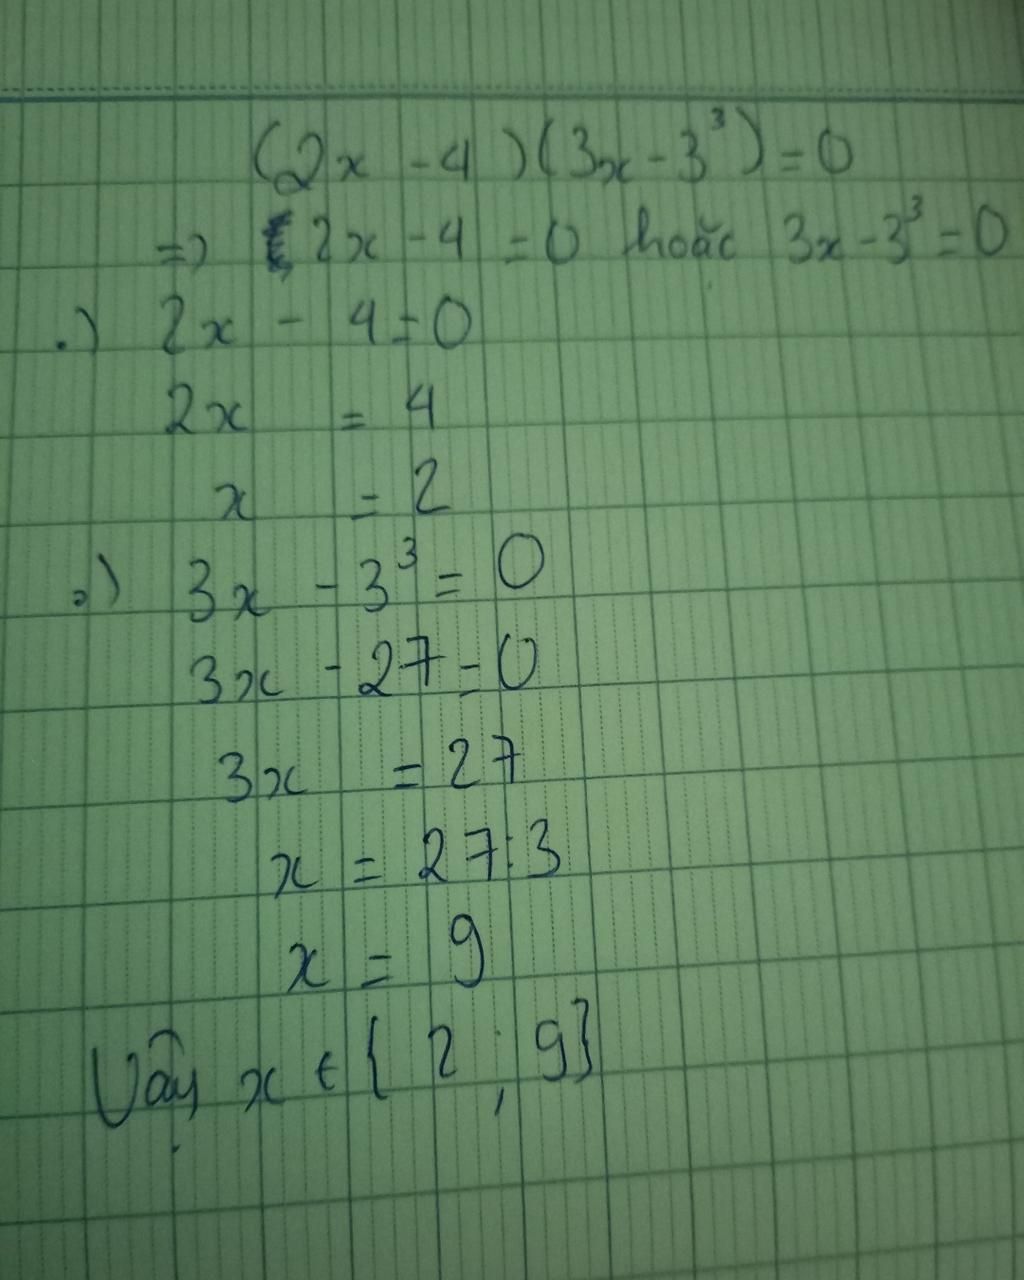 (2x - 4)(3x - 3³) = 0
=> 2x - 4 = 0 hoặc 3x - 3³ = 0
.) 2x - 4 = 0
2x = 4
x = 2
.) 3x - 3³ = 0
3x - 27 = 0
3x = 27
x = 27:3
x = 9
Vậy x ∈ { 2 ; 9}